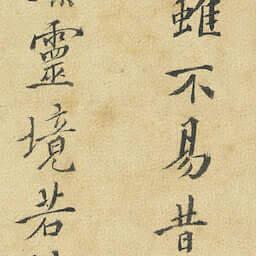 雖不易昔
靈境若